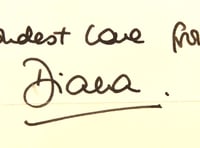 ondest love from
Diana.